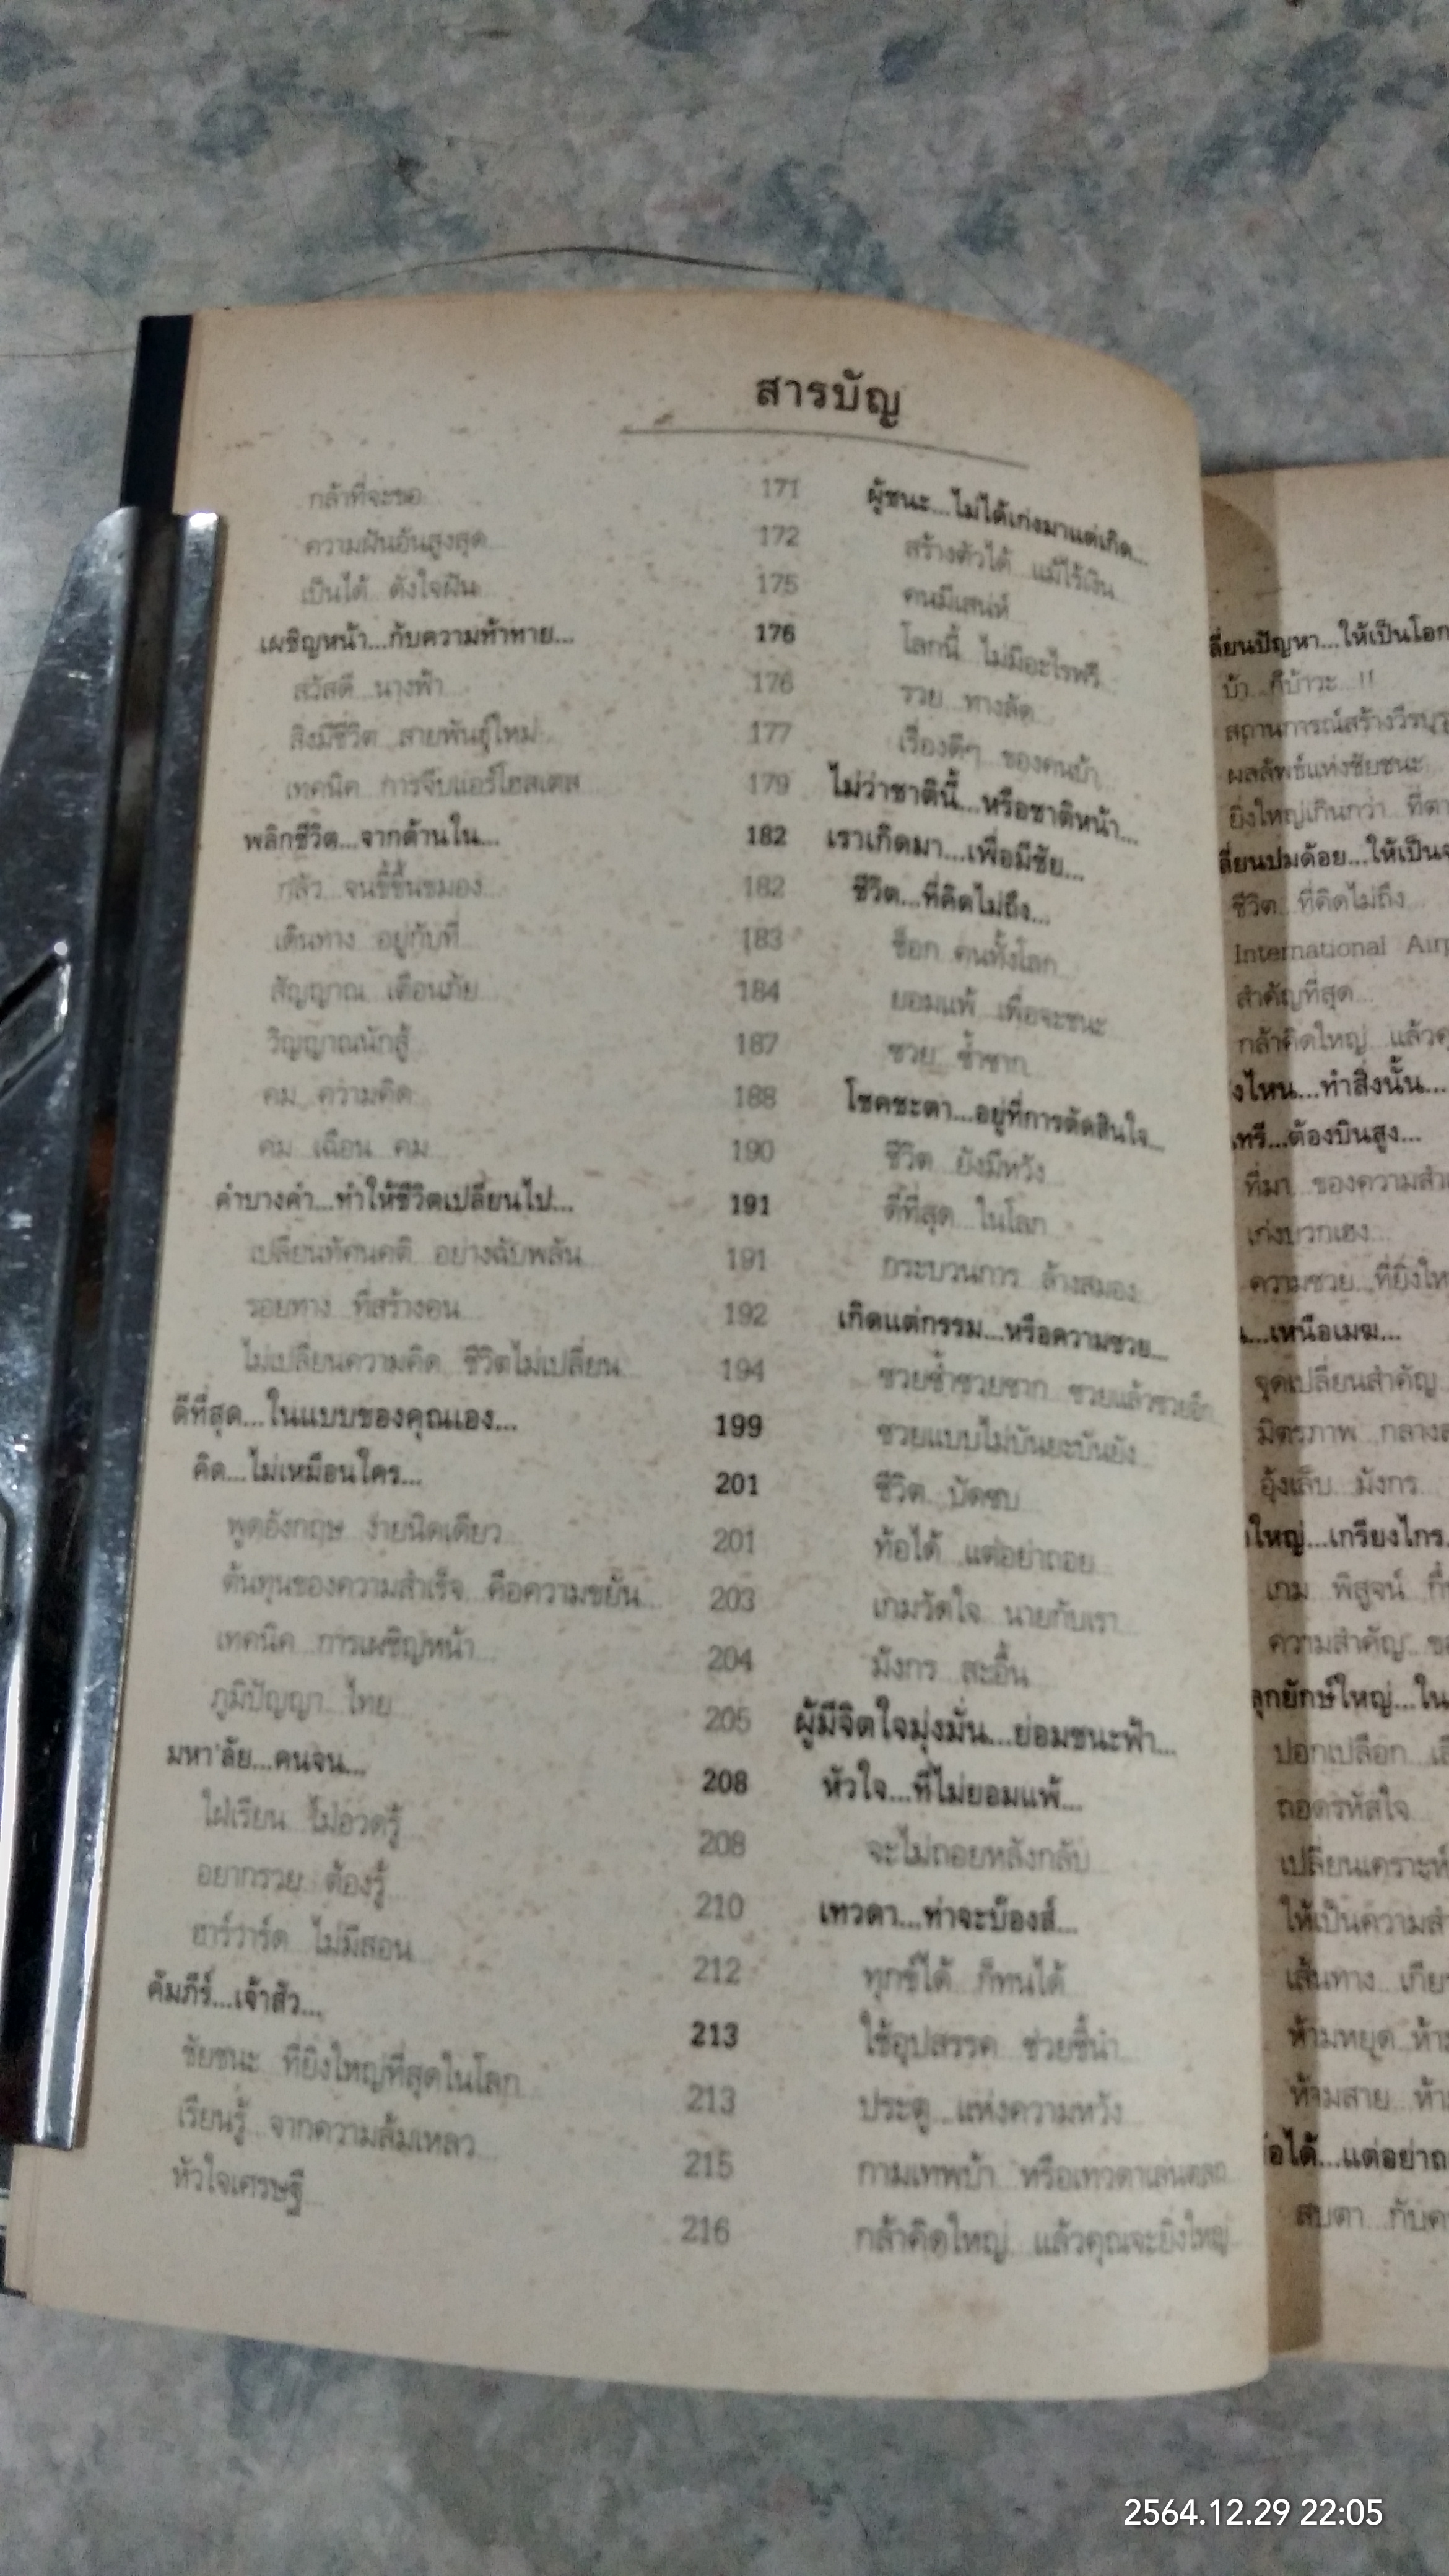 สารบัญ
กล้าที่จะขอ... 171
ความฝันอันสูงสุด... 172
เป็นได้...ดังใจฝัน... 175
เผชิญหน้า...กับความท้าทาย... 176
สวัสดี...นางฟ้า... 176
สิ่งมีชีวิต...สายพันธุ์ใหม่... 177
เทคนิค...การจีบแอร์โฮสเตส... 179
พลิกชีวิต...จากด้านใน... 182
กลัว...จนขี้ขึ้นสมอง... 182
เส้นทาง...อยู่กับที่... 183
สัญญาณ...เตือนภัย... 184
วิญญาณนักสู้... 187
คม...ความคิด... 188
คม...เฉือน...คม... 190
คำบางคำ...ทำให้ชีวิตเปลี่ยนไป... 191
เปลี่ยนทัศนคติ...อย่างฉับพลัน... 191
รอยทาง...ที่สร้างคน... 192
ไม่เปลี่ยนความคิด...ชีวิตไม่เปลี่ยน... 194
ดีที่สุด...ในแบบของคุณเอง... 199
คิด...ไม่เหมือนใคร... 201
พูดอังกฤษ...ง่ายนิดเดียว... 201
ต้นทุนของความสำเร็จ...คือความขยัน... 203
เทคนิค...การเผชิญหน้า... 204
ภูมิปัญญา...ไทย... 205
มหา'ลัย...คนจน... 208
ใฝ่เรียน...ไม่อวดรู้... 208
อยากรวย...ต้องรู้... 210
ฮาร์วาร์ด...ไม่มีสอน... 212
คัมภีร์...เจ้าสัว... 213
ชัยชนะ...ที่ยิ่งใหญ่ที่สุดในโลก... 213
เรียนรู้...จากความล้มเหลว... 215
หัวใจเศรษฐี... 216
ผู้ชนะ...ไม่ได้เก่งมาแต่เกิด...
สร้างตัวได้...แม้ไร้เงิน...
คนมีเสน่ห์
โลกนี้...ไม่มีอะไรฟรี...
รวย...ทางลัด...
เรื่องดีๆ...ของคนบ้า...
ไม่ว่าชาตินี้...หรือชาติหน้า...
เราเกิดมา...เพื่อมีชัย...
ชีวิต...ที่คิดไม่ถึง...
ช็อก...คนทั้งโลก...
ยอมแพ้...เพื่อจะชนะ...
ซวย...ซ้ำซาก...
โชคชะตา...อยู่ที่การตัดสินใจ...
ชีวิต...ยังมีหวัง...
ดีที่สุด...ในโลก...
กระบวนการ...ล้างสมอง...
เกิดแต่กรรม...หรือความซวย...
ซวยซ้ำซวยซาก...ซวยแล้วซวยอีก...
ซวยแบบไม่บันยะบันยัง...
ชีวิต...บัดซบ...
ท้อได้...แต่อย่าถอย...
เกมวัดใจ...นายกับเรา...
มังกร...สะอื้น...
ผู้มีจิตใจมุ่งมั่น...ย่อมชนะฟ้า...
หัวใจ...ที่ไม่ยอมแพ้...
จะไม่ถอยหลังกลับ...
เทวดา...ท่าจะบ๊องส์...
ทุกข์ได้...ก็ทนได้...
ใช้อุปสรรค...ช่วยชี้นำ...
ประตู...แห่งความหวัง...
กามเทพบ้า...หรือเทวดาเล่นตลก...
กล้าคิดใหญ่...แล้วคุณจะยิ่งใหญ่...
ลี่ยนปัญหา...ให้เป็นโอก
บ้า...ก็บ้าวะ...!!
สถานการณ์สร้างวีรบุ
ผลลัพธ์แห่งชัยชนะ
ยิ่งใหญ่เกินกว่า...ที่ตา
ลี่ยนปมด้อย...ให้เป็นจ
ชีวิต...ที่คิดไม่ถึง...
International Air
สำคัญที่สุด...
กล้าคิดใหญ่...แล้วคุ
งไหน...ทำสิ่งนั้น...
ทรี...ต้องบินสูง...
ที่มา...ของความสำเ
เก่งบวกเฮง...
ความซวย...ที่ยิ่งให
...เหนือเมฆ...
จุดเปลี่ยนสำคัญ
มิตรภาพ...กลาง
อุ้งเล็บ...มังกร...
ใหญ่...เกรียงไกร.
เกม...พิสูจน์...กึ๋
ความสำคัญ...ขอ
ลูกยักษ์ใหญ่...ใน
ปอกเปลือก...เ
ถอดรหัสใจ...
เปลี่ยนเคราะห์
ให้เป็นความสำ
เส้นทาง...เกีย
ห้ามหยุด...ห้า
ห้ามสาย...ห้า
อได้...แต่อย่าถ
สบตา...กับค
2564.12.29 22:05